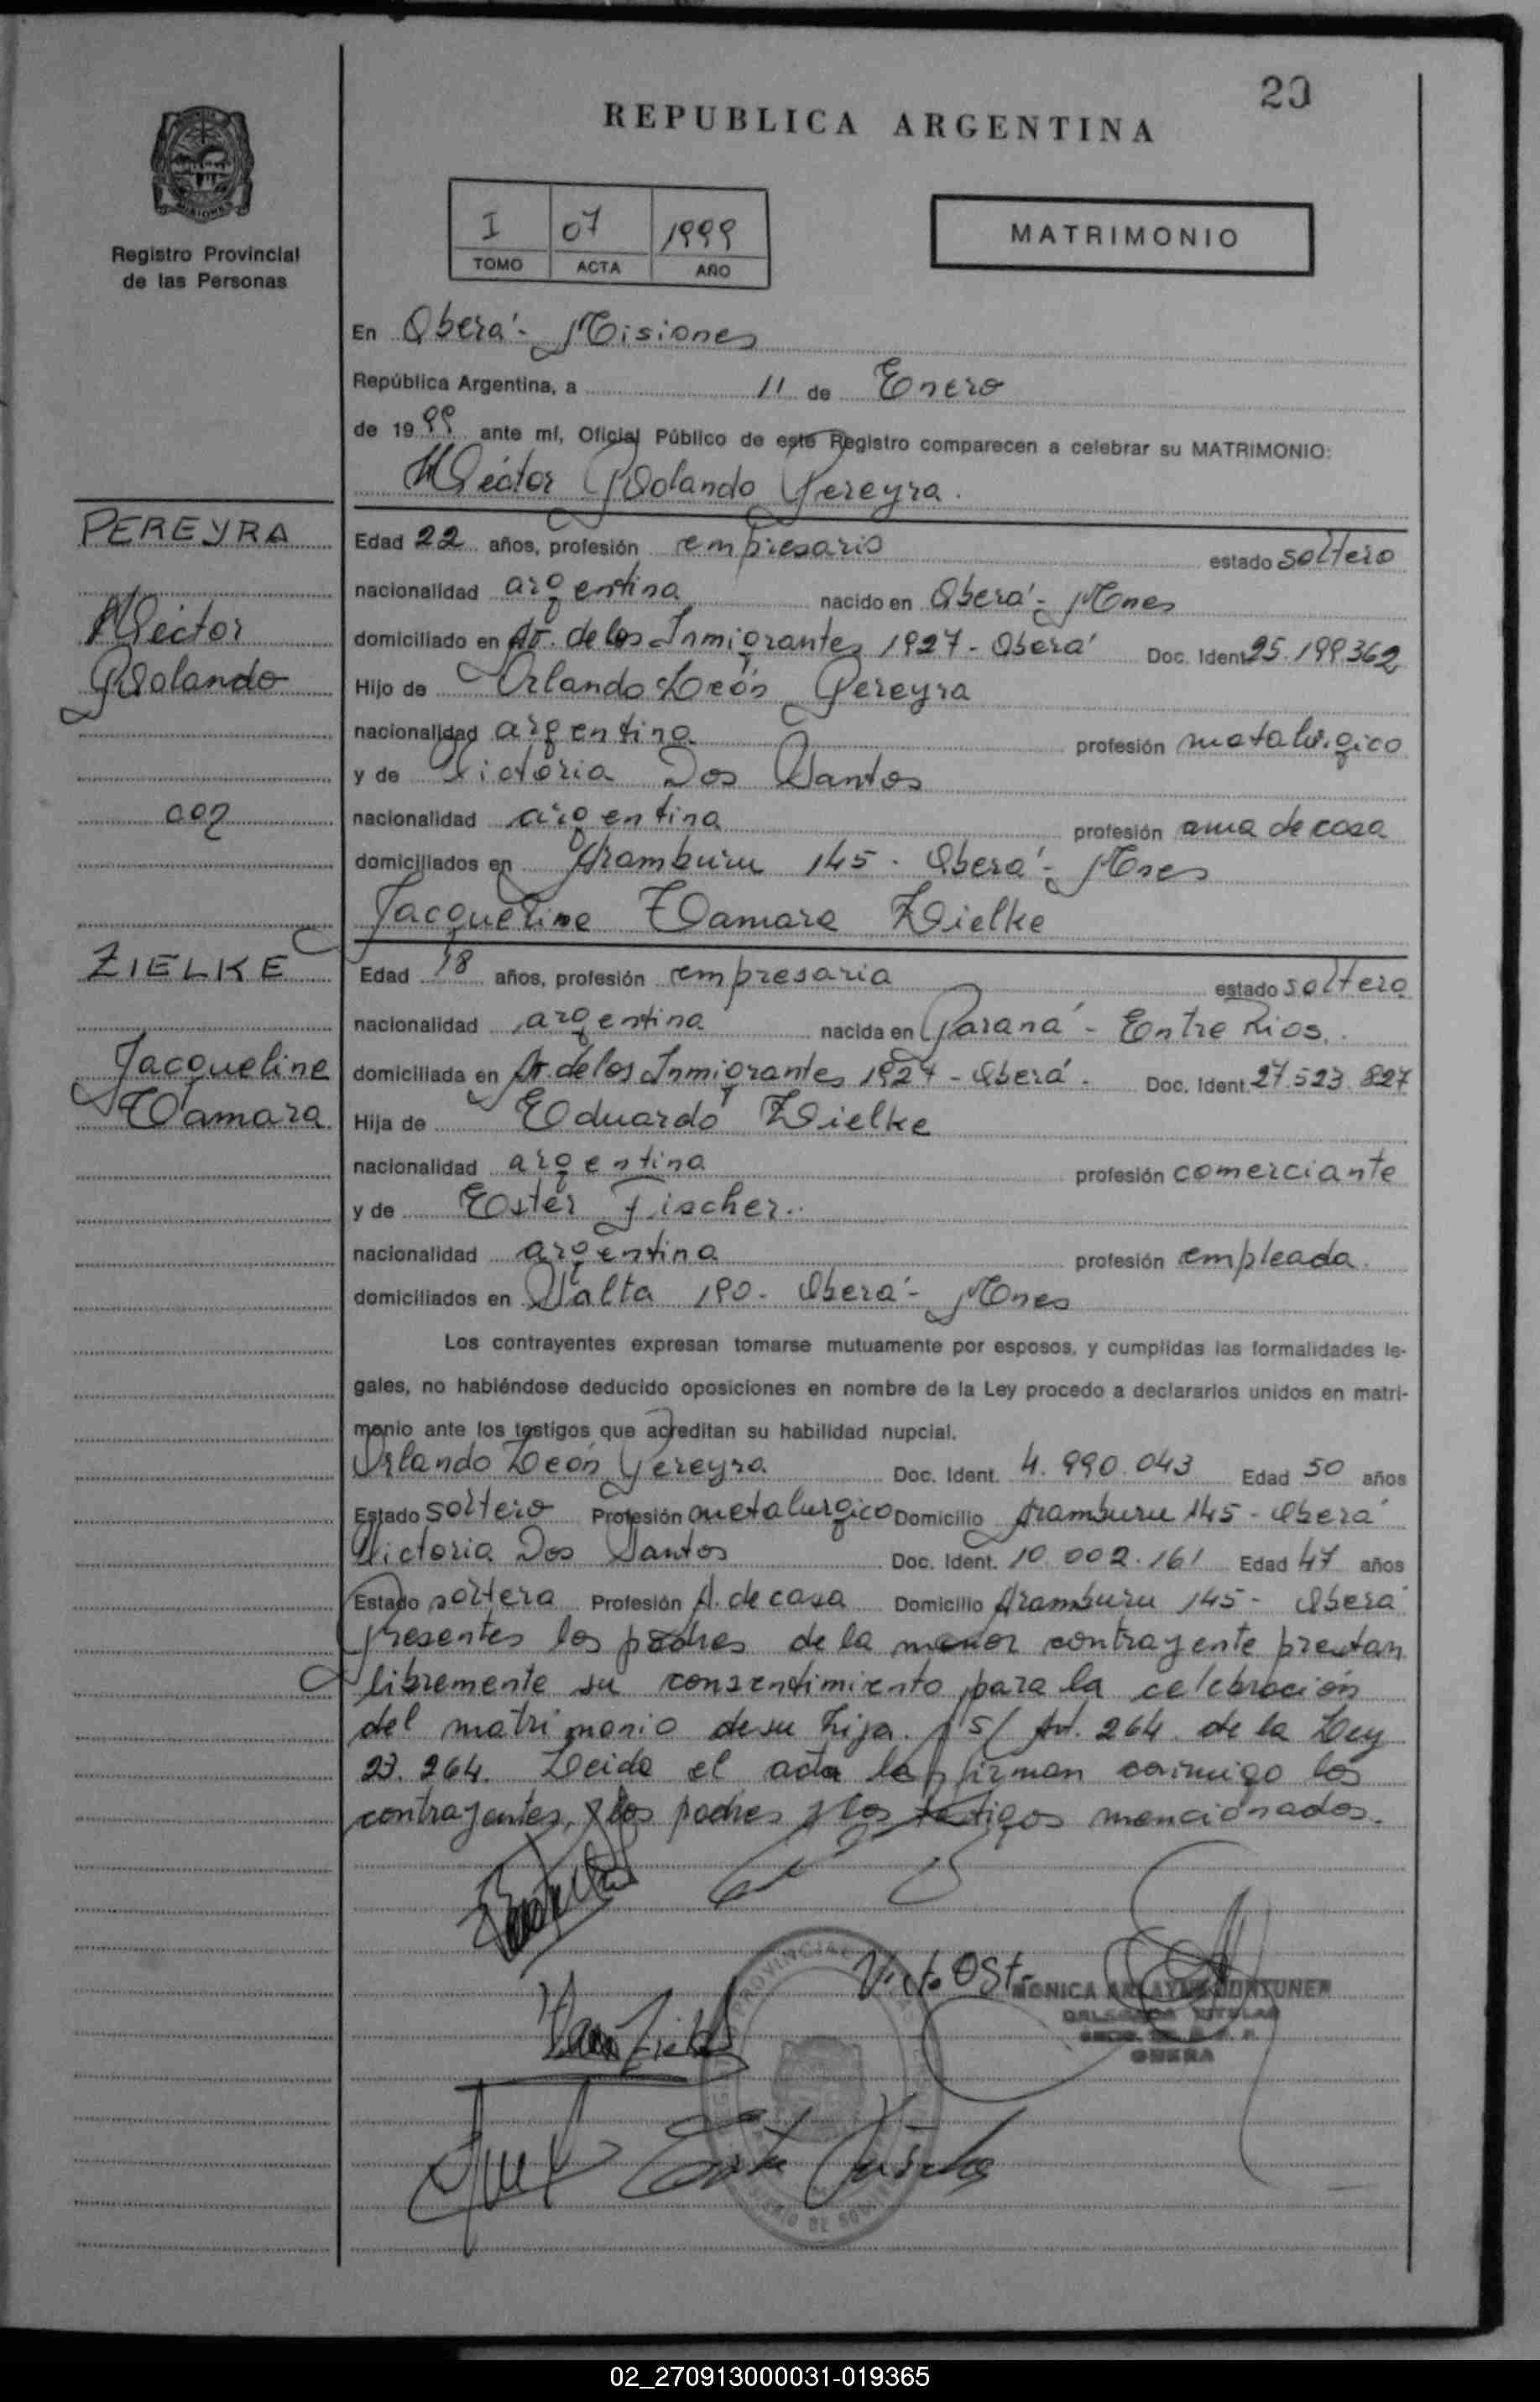 20
REPUBLICA ARGENTINA
MISIONES
Registro Provincial
de las Personas
I 07 1999
TOMO ACTA AÑO
MATRIMONIO
En Oberá - Misiones
República Argentina, a 11 de Enero
de 1999 ante mí, Oficial Público de este Registro comparecen a celebrar su MATRIMONIO:
Héctor Rolando Pereyra.
PEREYRA
Héctor
Rolando
002
Edad 22 años, profesión empresario estado soltero
nacionalidad argentina nacido en Oberá - Mnes
domiciliado en Av. de los Inmigrantes 1927 - Oberá Doc. Ident. 25.199362
Hijo de Orlando León Pereyra
nacionalidad argentina profesión metalúrgico
y de Victoria Dos Santos
nacionalidad argentina profesión ama de casa
domiciliados en Aramburu 145 - Oberá - Mnes
Jacqueline Tamara Zielke
ZIELKE
Jacqueline
Tamara
Edad 18 años, profesión empresaria estado soltera
nacionalidad argentina nacida en Paraná - Entre Rios.
domiciliada en Av. de los Inmigrantes 1927 - Oberá. Doc. Ident. 27.523.827
Hija de Eduardo Zielke
nacionalidad argentina profesión comerciante
y de Ester Fischer.
nacionalidad argentina profesión empleada.
domiciliados en Salta 190 - Oberá - Mnes
Los contrayentes expresan tomarse mutuamente por esposos, y cumplidas las formalidades le-
gales, no habiéndose deducido oposiciones en nombre de la Ley procedo a declararlos unidos en matri-
monio ante los testigos que acreditan su habilidad nupcial.
Orlando León Pereyra Doc. Ident. 4.990.043 Edad 50 años
Estado soltero Profesión metalurgico Domicilio Aramburu 145 - Oberá
Victoria Dos Santos Doc. Ident. 10.002.161 Edad 47 años
Estado soltera Profesión A. de casa Domicilio Aramburu 145 - Oberá
Presentes los padres de la menor contrayente prestan
libremente su consentimiento para la celebración
del matrimonio de su hija. s/ Art. 264 de la Ley
23.264. Leida el acta la firman conmigo los
contrayentes, los padres y los testigos mencionados.
MONICA
OBERA
02_270913000031-019365